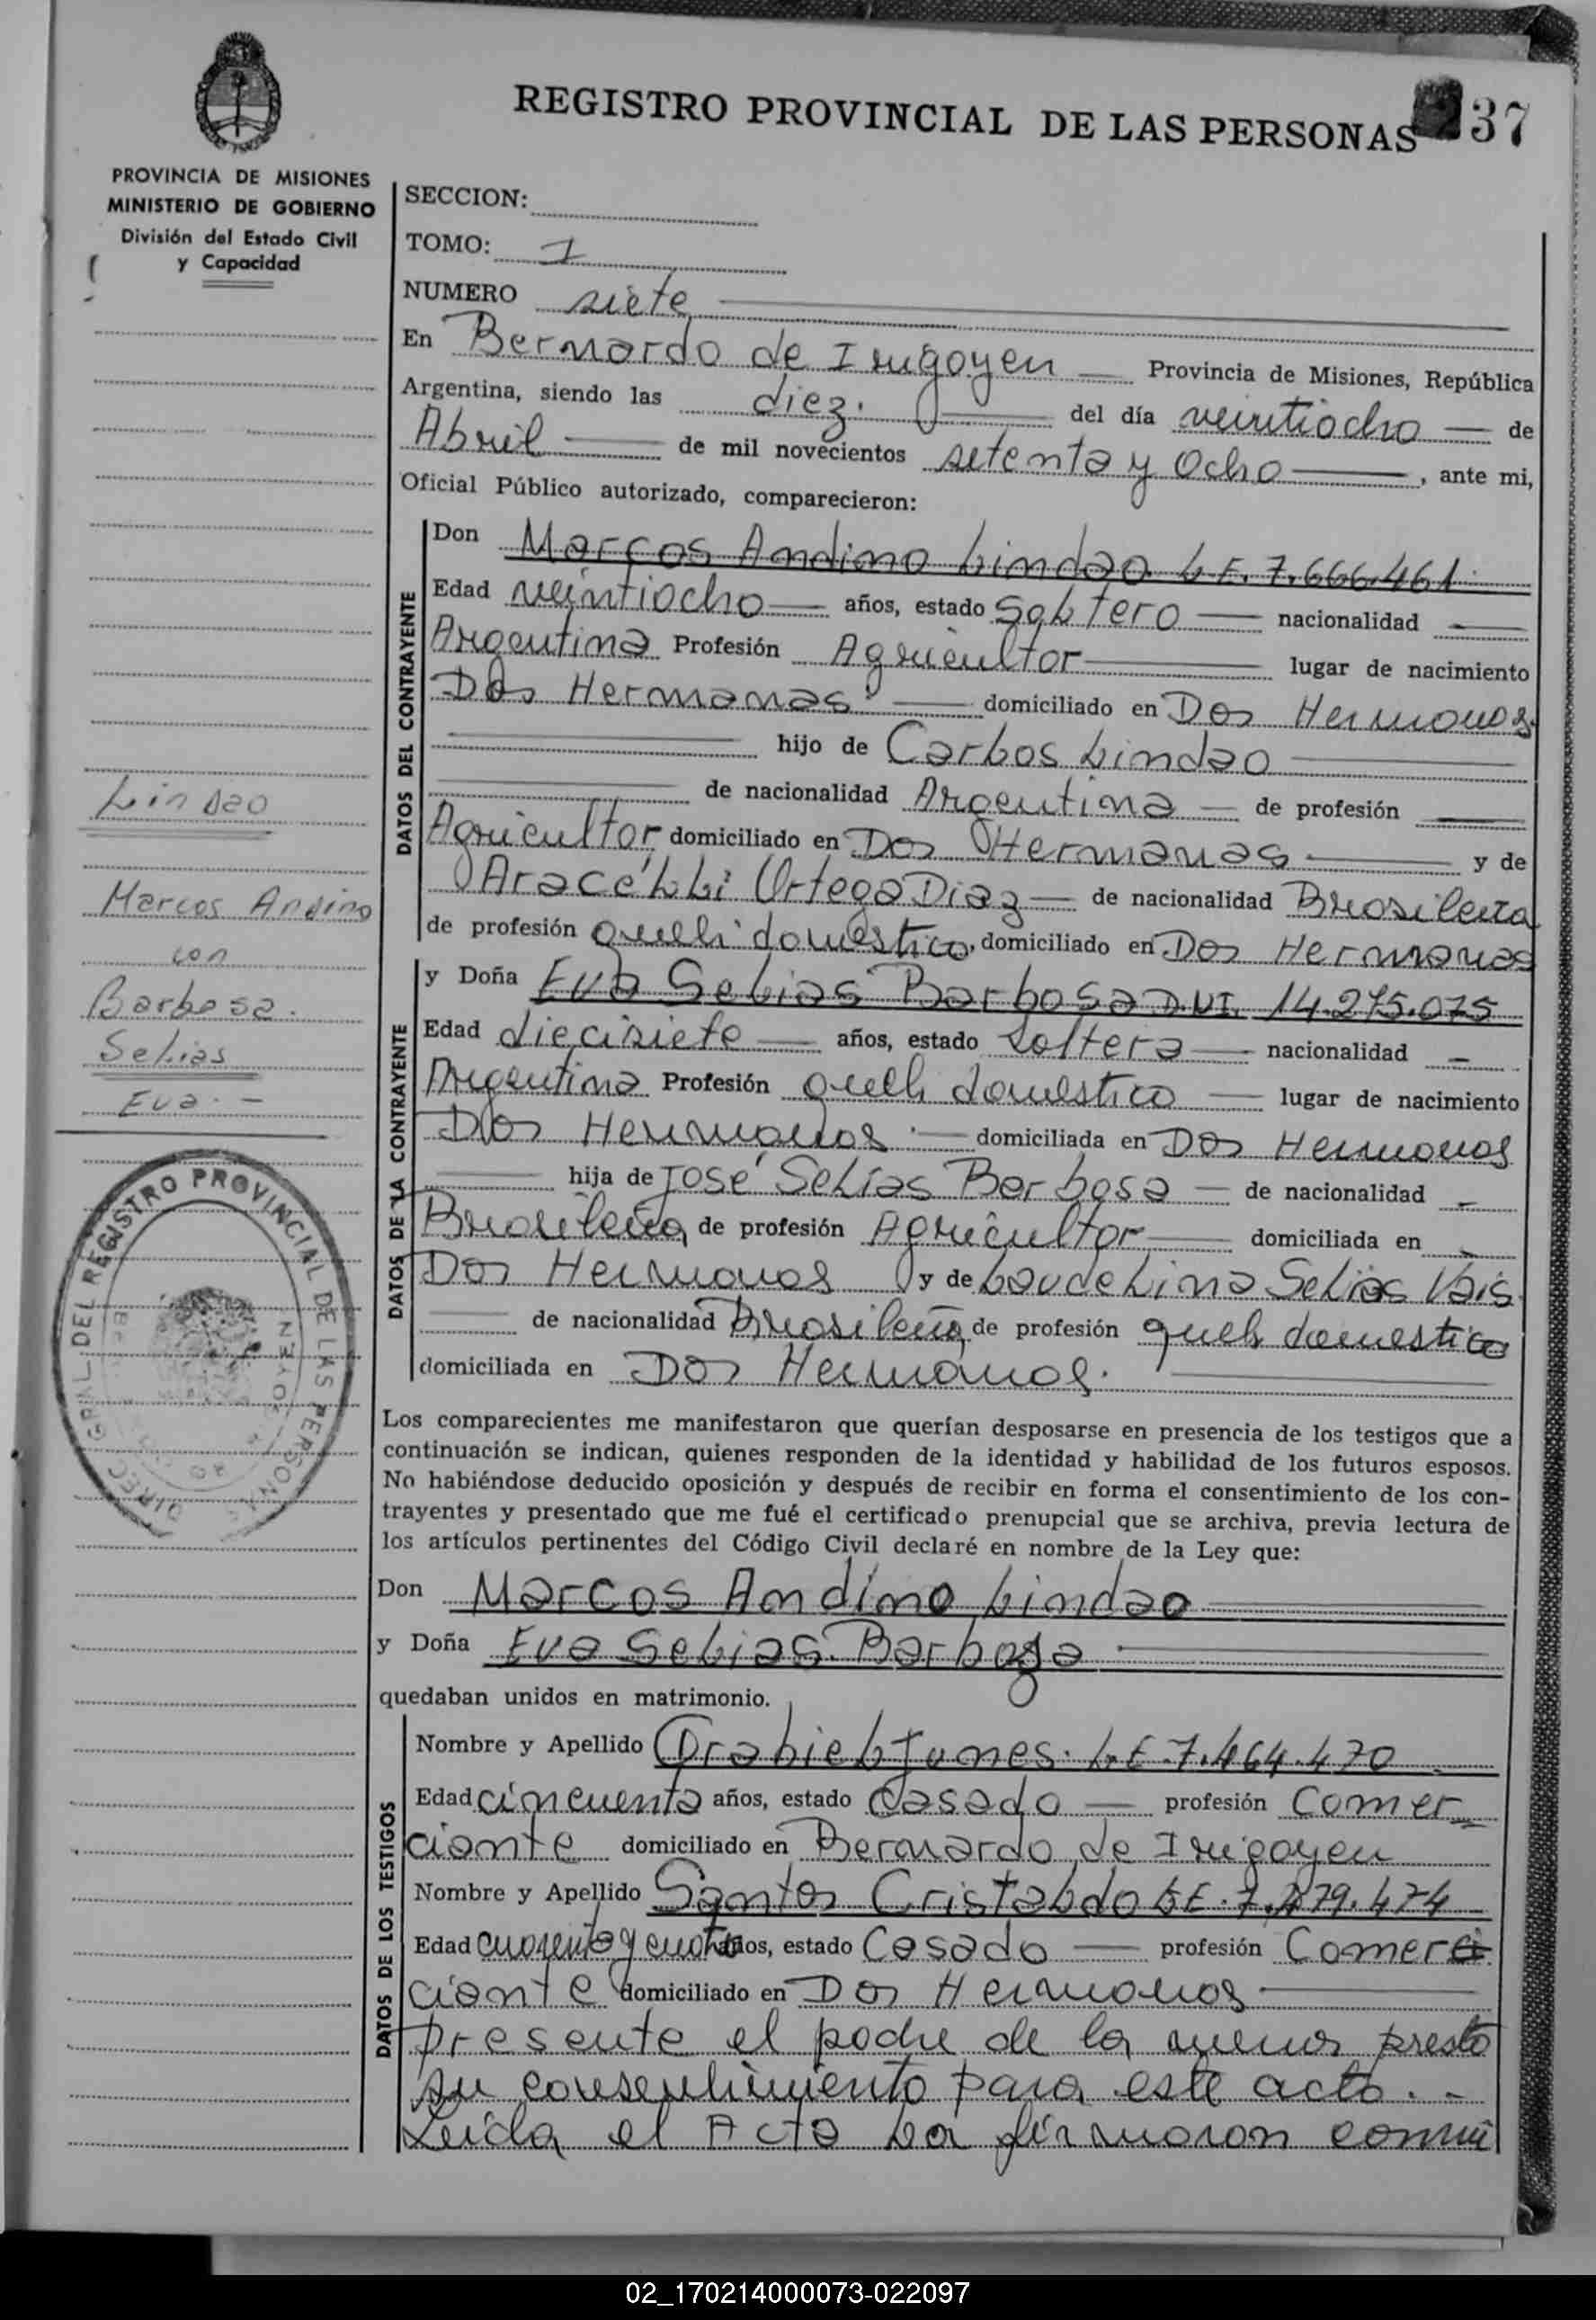 REGISTRO PROVINCIAL DE LAS PERSONAS 37
PROVINCIA DE MISIONES
MINISTERIO DE GOBIERNO
División del Estado Civil
y Capacidad
SECCION:
TOMO: 1
NUMERO siete
En Bernardo de Irigoyen Provincia de Misiones, República
Argentina, siendo las diez. del día veintiocho de
Abril de mil novecientos setenta y Ocho, ante mi,
Oficial Público autorizado, comparecieron:
DATOS DEL CONTRAYENTE
Don Marcos Andino Lindao L.E. 7.666.461
Edad veintiocho años, estado Soltero nacionalidad
Argentina Profesión Agricultor lugar de nacimiento
Dos Hermanas domiciliado en Dos Hermanas
hijo de Carlos Lindao
de nacionalidad Argentina de profesión
Agricultor domiciliado en Dos Hermanas y de
Aracélli Ortega Diaz de nacionalidad Brasileña
de profesión queh. doméstico, domiciliado en Dos Hermanas
DATOS DE LA CONTRAYENTE
y Doña Eva Selias Barbosa D.NI. 14.275.075
Edad diecisiete años, estado Soltera nacionalidad
Argentina Profesión queh doméstico lugar de nacimiento
Dos Hermanas domiciliada en Dos Hermanas
hija de José Selias Barbosa de nacionalidad
Brasileña de profesión Agricultor domiciliada en
Dos Hermanas y de Laudelina Selias Vais
de nacionalidad Brasileña de profesión queh doméstico
domiciliada en Dos Hermanas.
Los comparecientes me manifestaron que querían desposarse en presencia de los testigos que a
continuación se indican, quienes responden de la identidad y habilidad de los futuros esposos.
No habiéndose deducido oposición y después de recibir en forma el consentimiento de los con-
trayentes y presentado que me fué el certificado prenupcial que se archiva, previa lectura de
los artículos pertinentes del Código Civil declaré en nombre de la Ley que:
Don Marcos Andino Lindao
y Doña Eva Selias Barbosa
quedaban unidos en matrimonio.
DATOS DE LOS TESTIGOS
Nombre y Apellido Funes. L.E. 7.464.470
Edad cincuenta años, estado Casado profesión Comer
ciante domiciliado en Bernardo de Irigoyen
Nombre y Apellido Santos Cristaldo L.E. 7.479.474
Edad cuarenta y cuatro años, estado Casado profesión Comerci
ciante domiciliado en Dos Hermanas
presente el padre de la menor presto
su consentimiento para este acto. -
Leida el Acta la firmaron conmi
Lindao
Marcos Andino
con
Barbosa.
Selias
Eva. -
DIREC. GRAL. DEL REGISTRO PROVINCIAL DE LAS PERSONAS
02_170214000073-022097